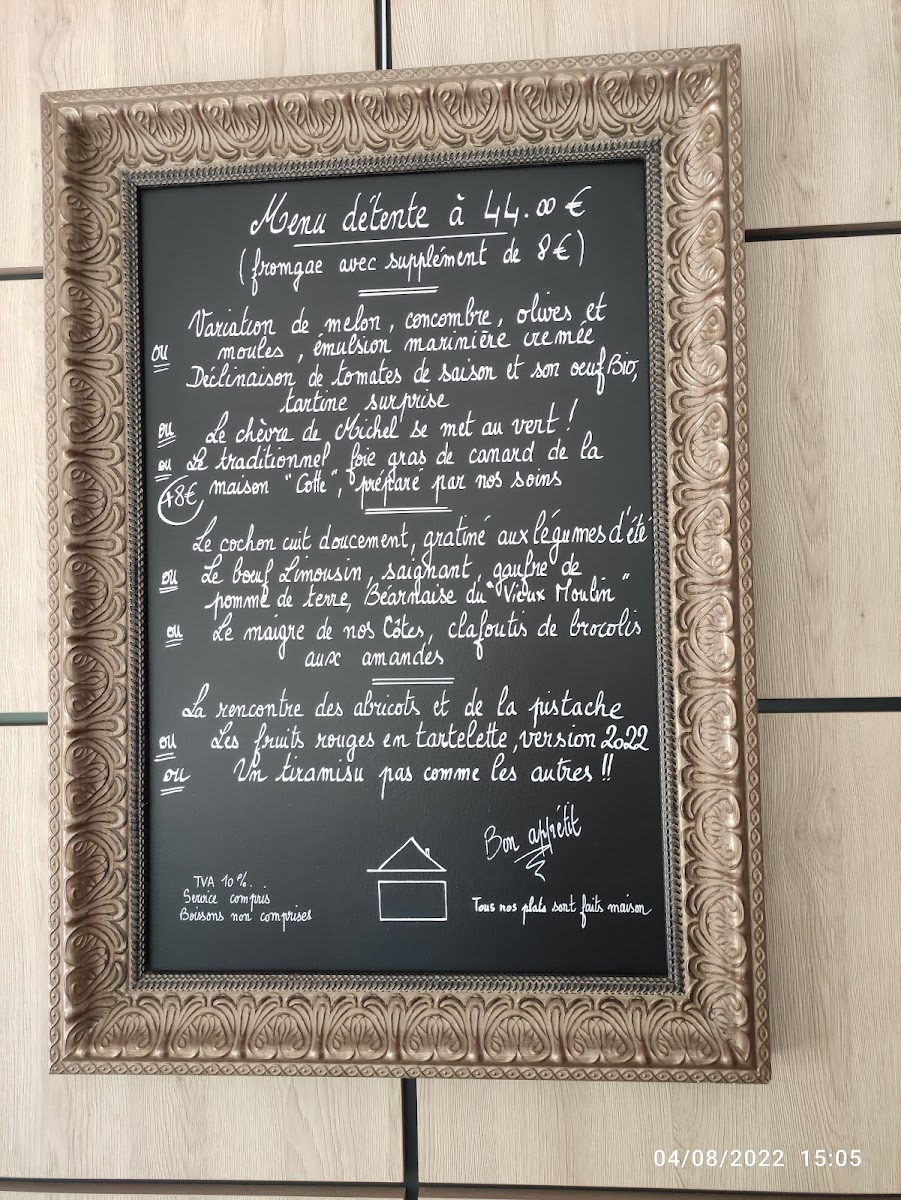 Menu détente à 44.00 €
(fromgae avec supplément de 8€)
Variation de melon, concombre, olives et
moules, émulsion marinière cremée
ou
Déclinaison de tomates de saison et son oeuf Bio,
tartine surprise
ou Le chèvre de Michel se met au vert !
ou Le traditionnel foie gras de canard de la
+8€ maison "Cotte", préparé par nos soins
Le cochon cuit doucement, gratiné aux légumes d'été
ou Le bœuf Limousin, saignant, gaufre de
pomme de terre, Béarnaise du "Vieux Moulin"
ou Le maigre de nos Côtes, clafoutis de brocolis
aux amandes
La rencontre des abricots et de la pistache
ou Les fruits rouges en tartelette, version 2022
ou Un tiramisu pas comme les autres !!
Bon appétit
TVA 10%.
Service compris
Boissons non comprises
Tous nos plats sont faits maison
04/08/2022 15:05